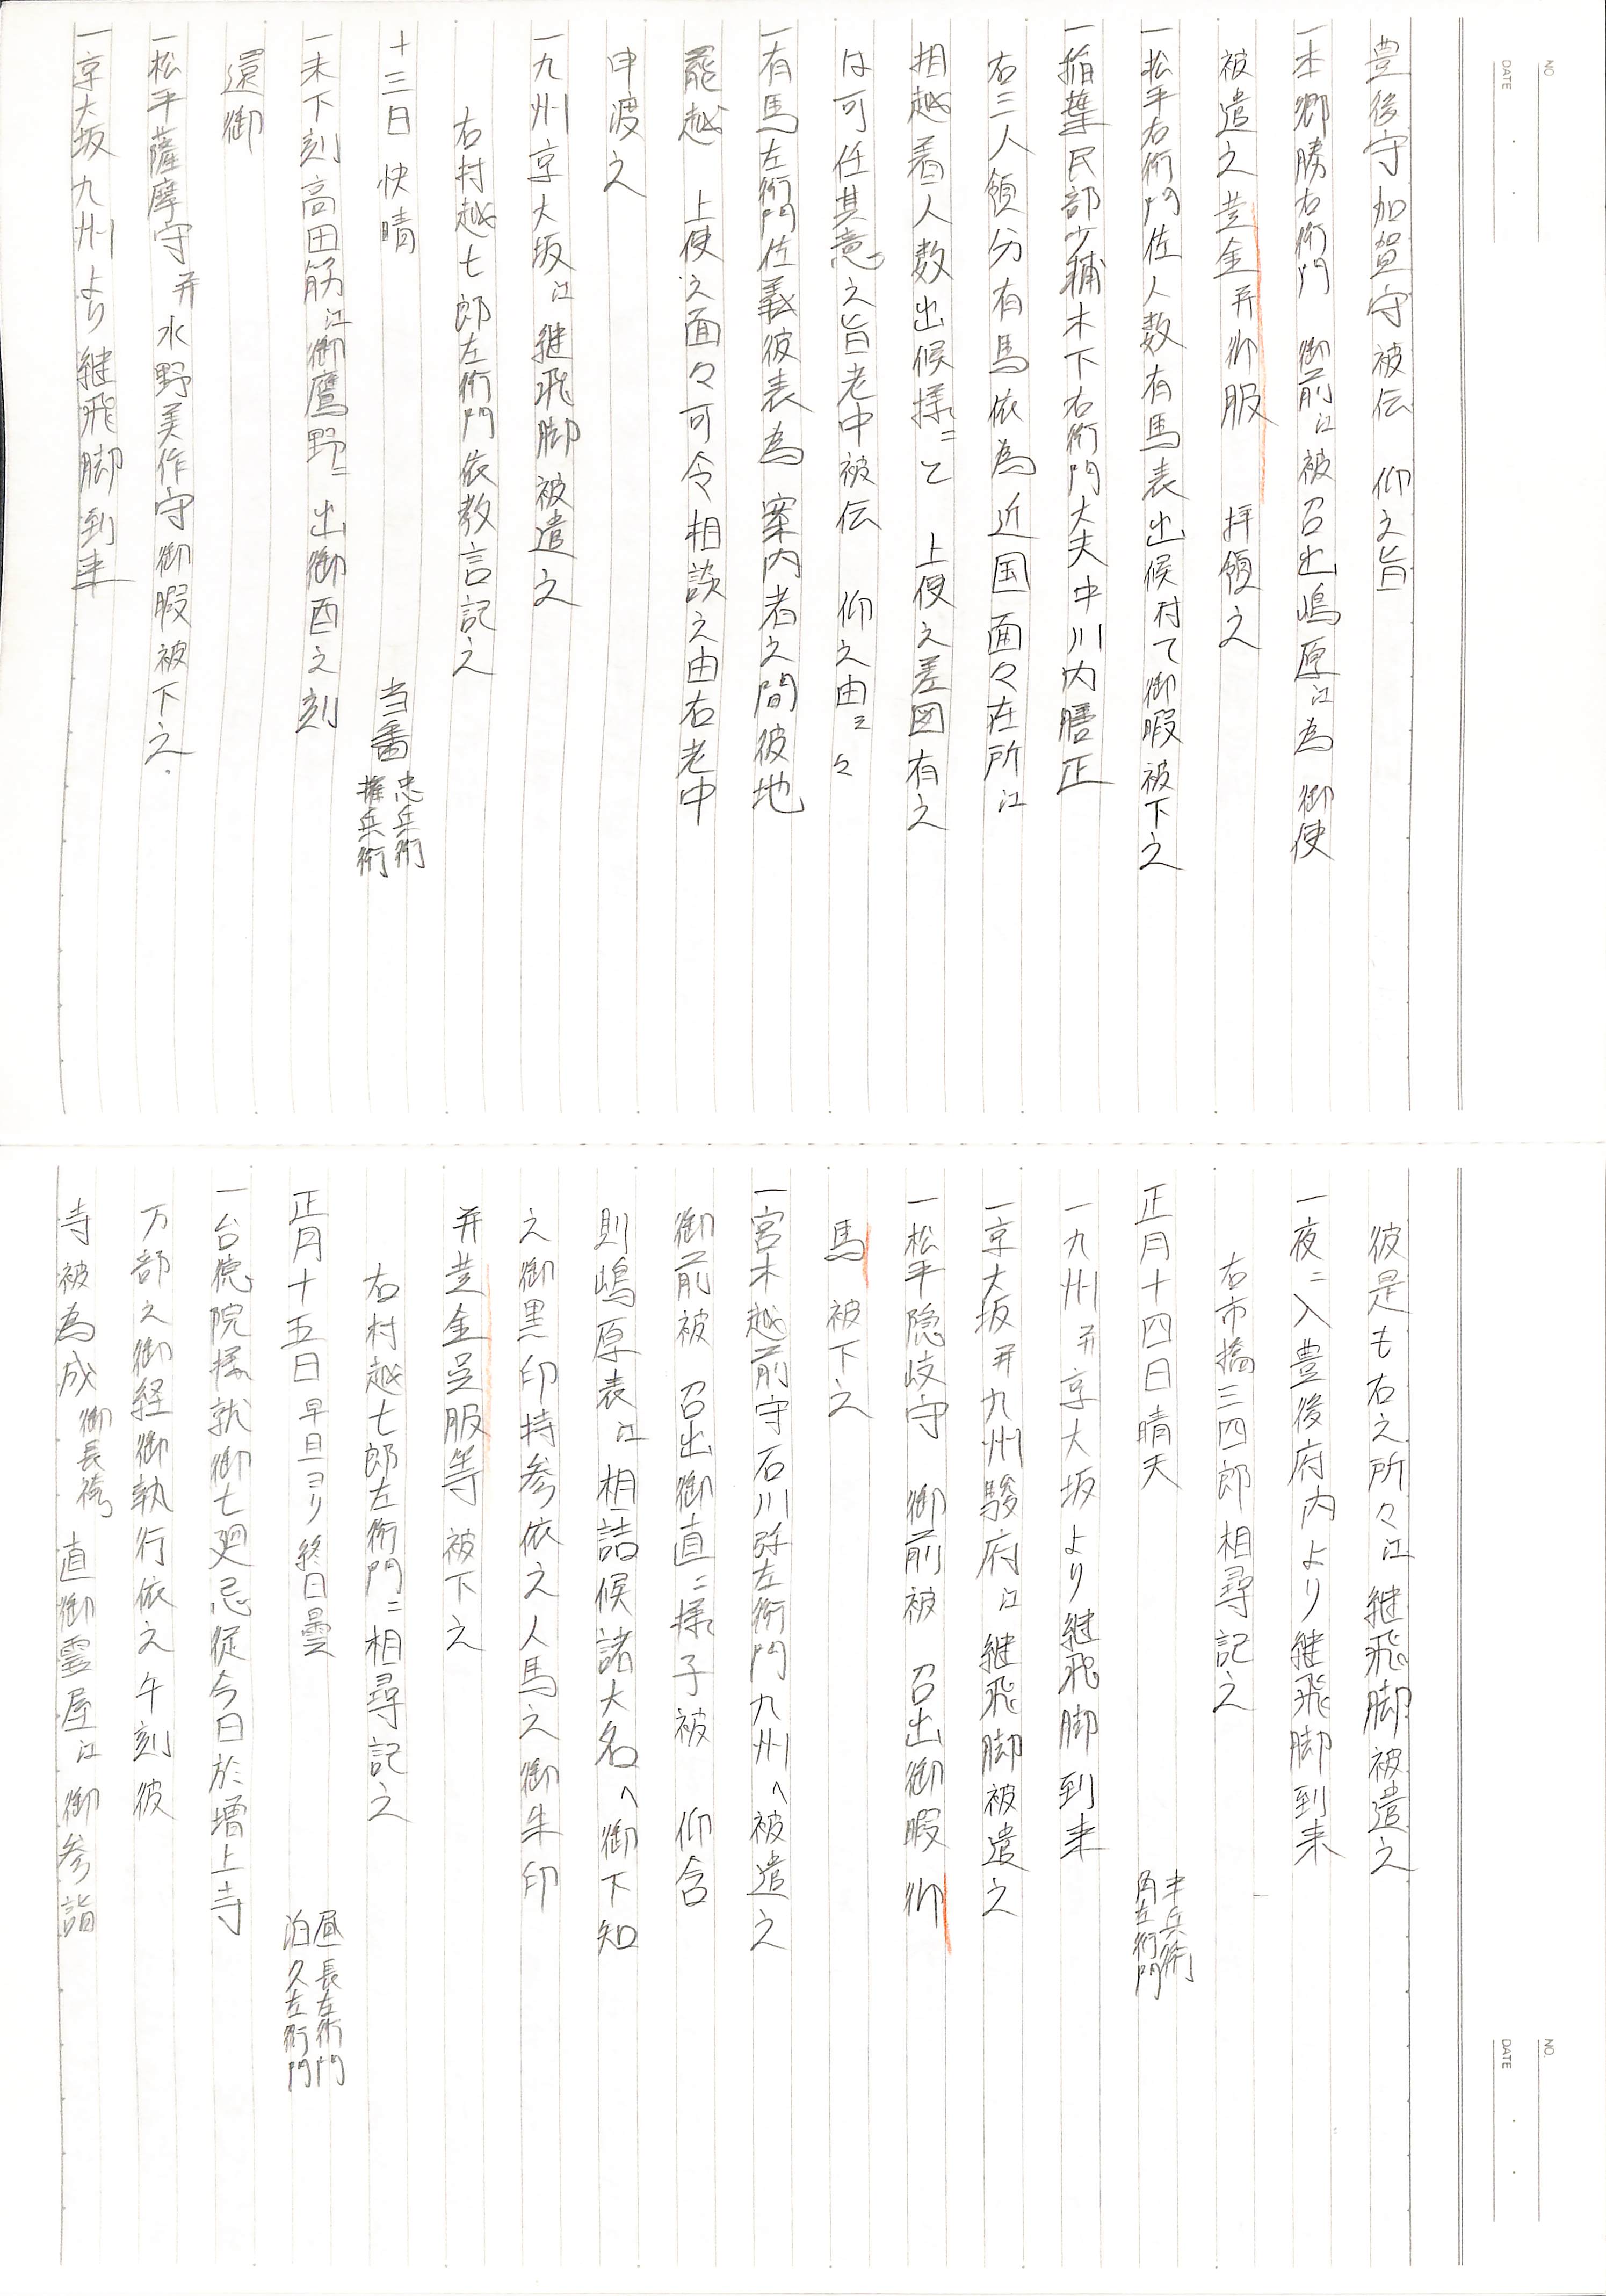 NO.
DATE
豊後守加賀守被伝　仰之旨
一本郷勝右衛門　御前江被召出嶋原江為　御使
被遣之 黄金并御服　拝領之
一松平右衛門佐人数有馬表出候付て御暇被下之
一稲葉民部少輔木下右衛門大夫中川内膳正
右三人領分有馬依為近国面々在所江
相越着人数出候様ニと　上使之差図有之
は可任其意之旨老中被伝　仰之由云々
一有馬左衛門佐義彼表為案内者之間彼地
罷越　上使之面々可令相談之由右老中
申渡之
一九州京大坂江継飛脚被遣之
右村越七郎左衛門依教言記之
十三日 快晴　当番 忠兵衛 権兵衛
一未下刻高田筋江御鷹野ニ出御酉之刻
還御
一松平薩摩守并水野美作守御暇被下之
一京大坂九州より継飛脚到来
NO.
DATE
彼是も右之所々江継飛脚被遣之
一夜ニ入豊後府内より継飛脚到来
右市橋三四郎相尋記之
正月十四日晴天　半兵衛 角左衛門
一九州并京大坂より継飛脚到来
一京大坂并九州駿府江継飛脚被遣之
一松平隠岐守　御前被　召出御暇 御
馬　被下之
一宮木越前守石川弥左衛門九州へ被遣之
御前被　召出御直ニ様子被　仰含
則嶋原表江相詰候諸大名へ御下知
之御黒印持参依之人馬之御朱印
并黄金呉服等　被下之
右村越七郎左衛門ニ相尋記之
正月十五日 早旦ヨリ終日曇　昼 長左衛門 泊 久左衛門
一台徳院様就御七廻忌従今日於増上寺
万部之御経御執行依之午刻彼
寺被為成 御長袴　直御霊屋江御参詣